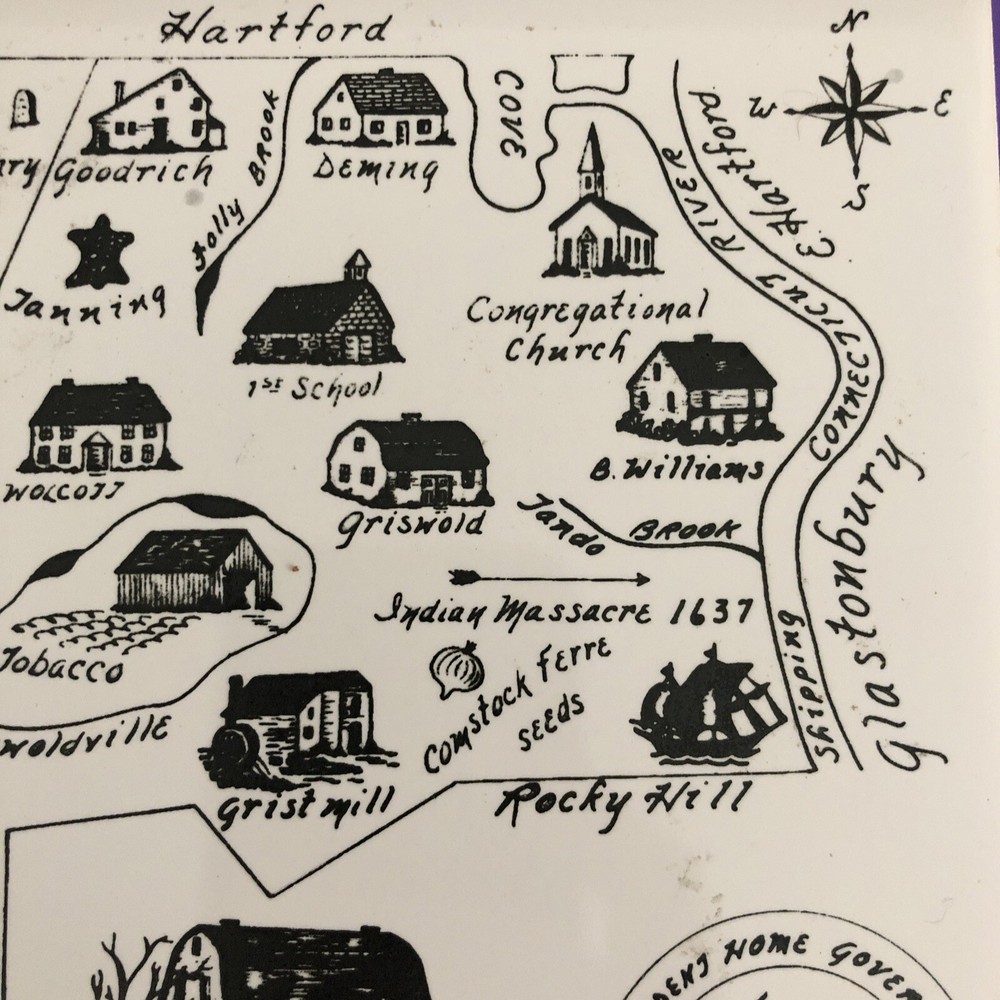 Hartford
N
W
E
S
COVE
E. Hartford
Goodrich
Folly BROOK
DEMING
CONNECTICUT RIVER
Tanning
1ST School
Congregational
Church
WOLCOTT
Griswold
B. Williams
Jando BROOK
Glastonbury
Indian Massacre 1637
Tobacco
Comstock FERRE
SEEDS
Shipping
Grist mill
Rocky Hill
HOME